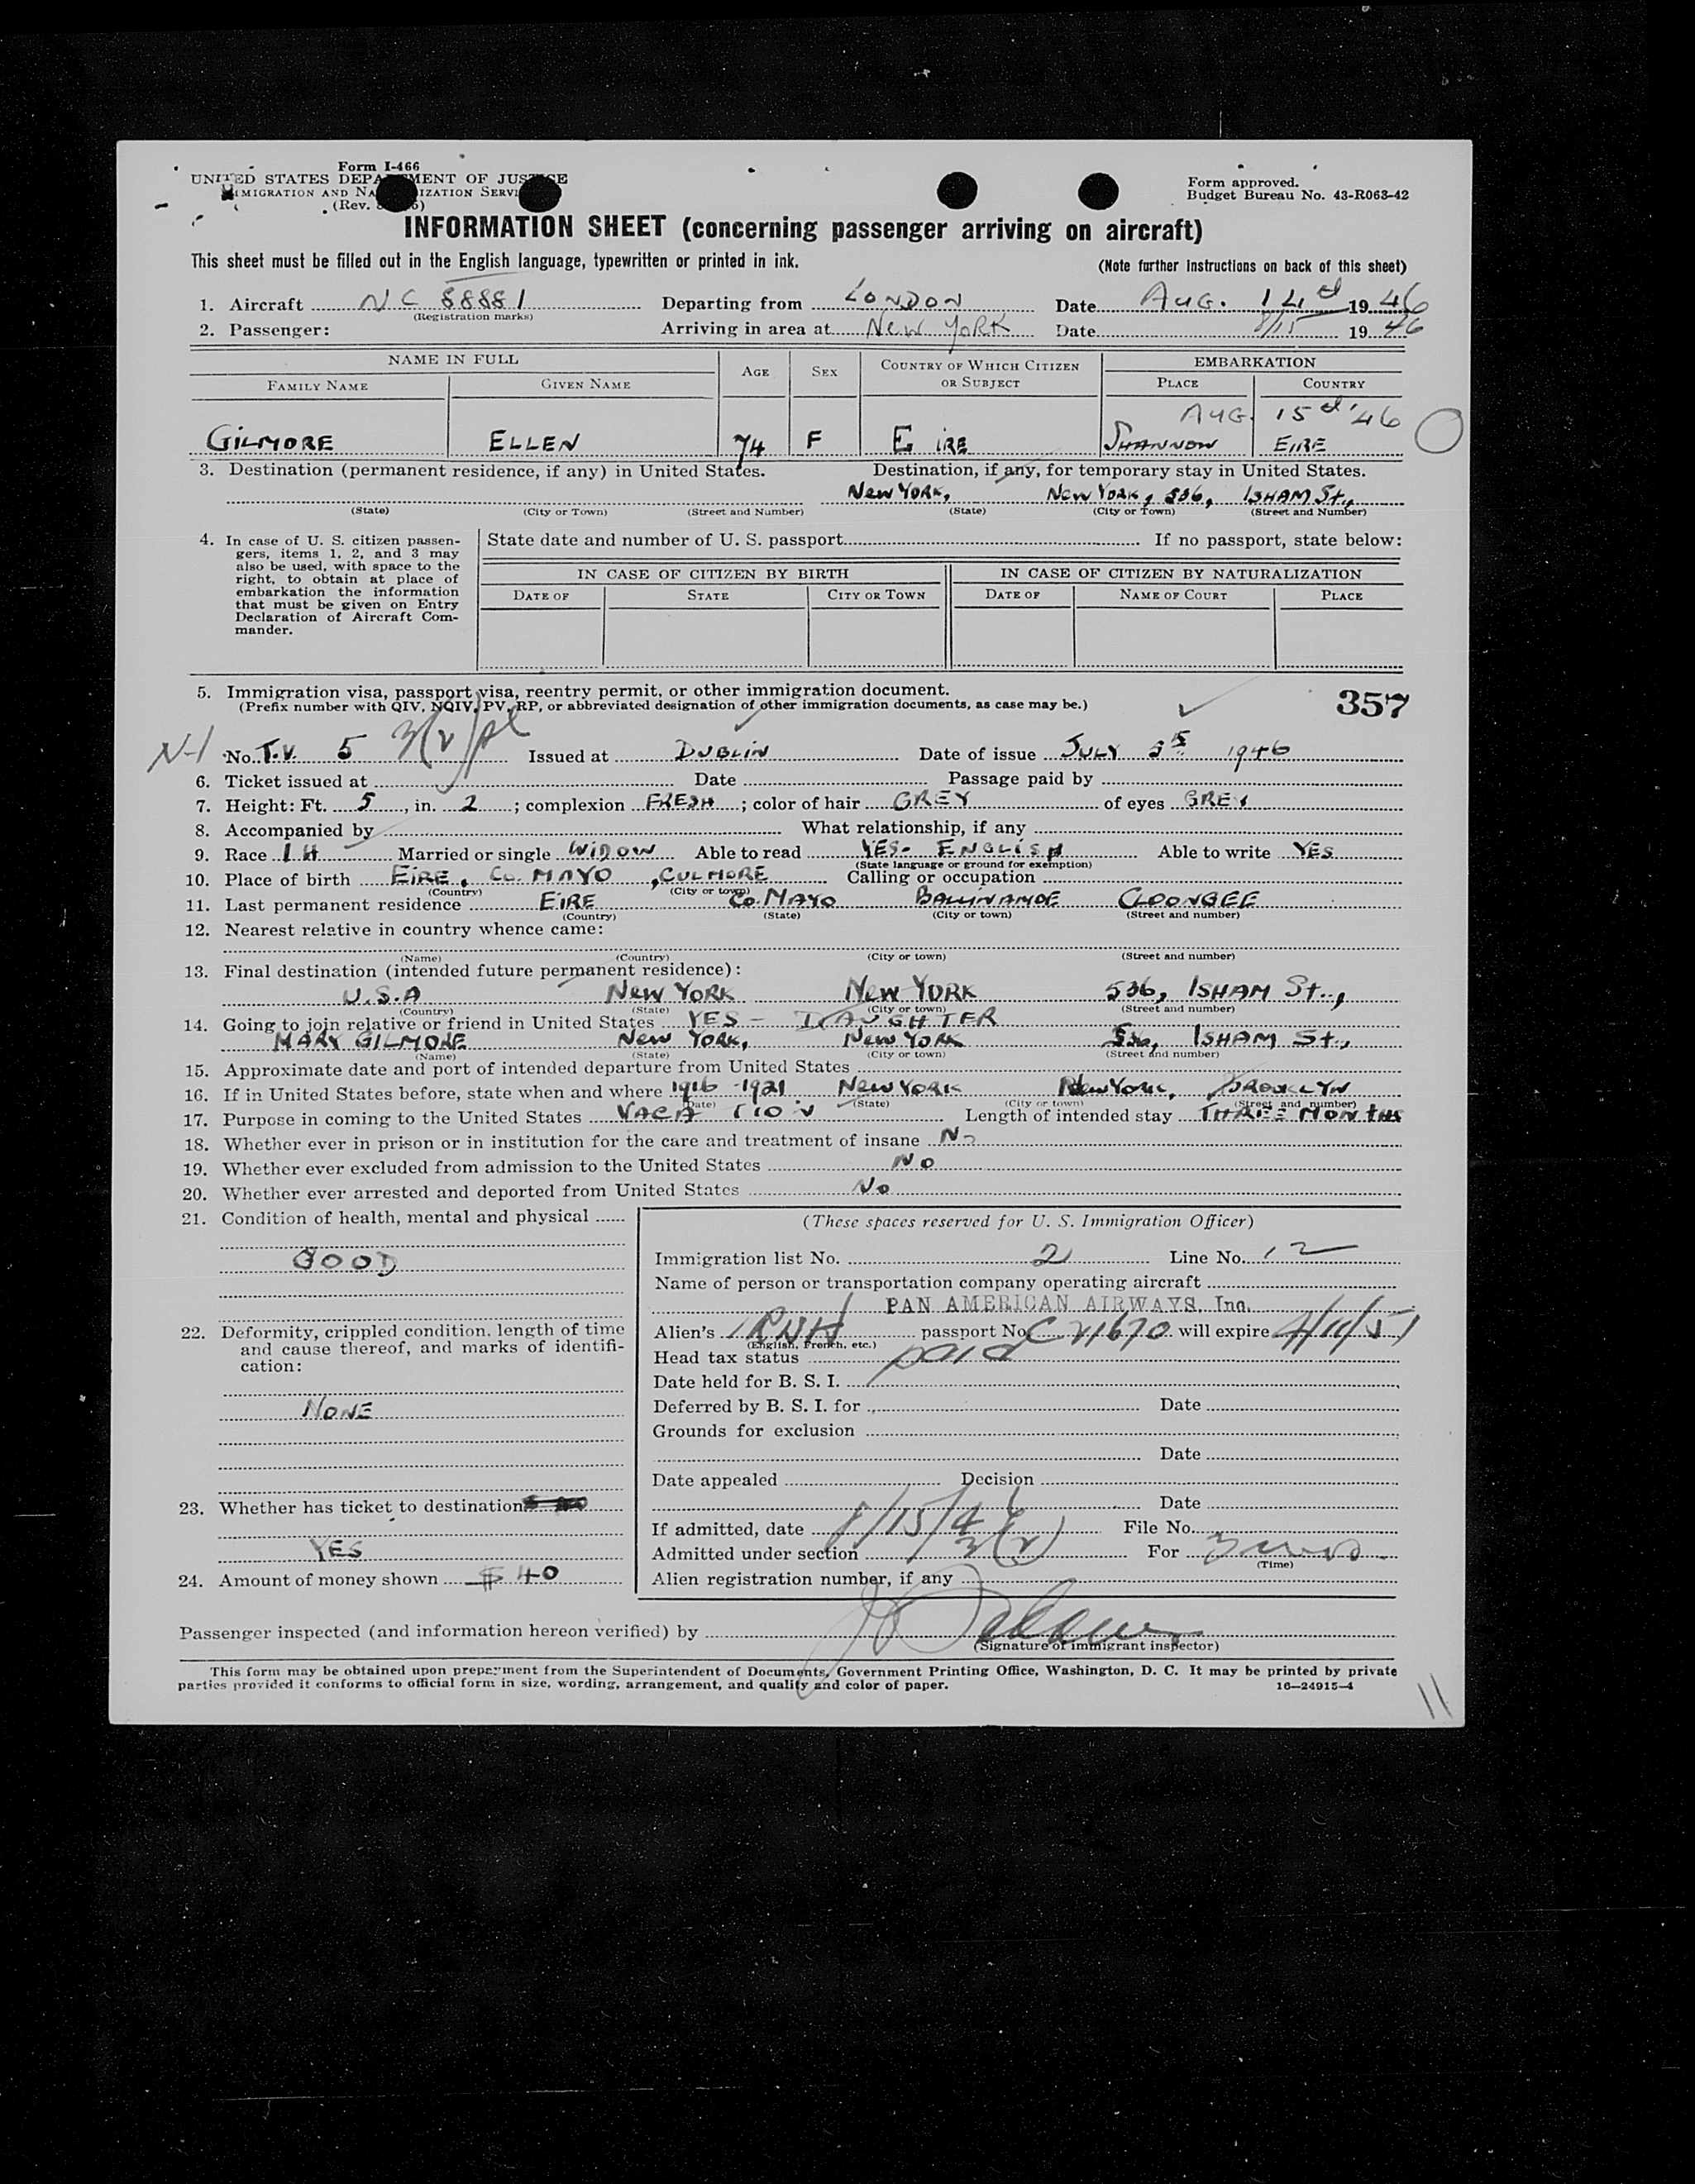 Form I-466
UNITED STATES DEPARTMENT OF JUSTICE
IMMIGRATION AND NATURALIZATION SERVICE
(Rev.
Form approved.
Budget Bureau No. 43-R063-42
INFORMATION SHEET (concerning passenger arriving on aircraft)
This sheet must be filled out in the English language, typewritten or printed in ink.
(Note further instructions on back of this sheet)
1. Aircraft NC 88881 Departing from LONDON Date AUG. 14 1946
(Registration marks)
2. Passenger: Arriving in area at NEW YORK Date 8/15 1946
NAME IN FULL AGE SEX COUNTRY OF WHICH CITIZEN OR SUBJECT EMBARKATION
FAMILY NAME GIVEN NAME PLACE COUNTRY
AUG. 15 '46
GILMORE ELLEN 74 F EIRE SHANNON EIRE
3. Destination (permanent residence, if any) in United States. Destination, if any, for temporary stay in United States.
NEW YORK, NEW YORK, 536, ISHAM St.,
(State) (City or Town) (Street and Number) (State) (City or Town) (Street and Number)
4. In case of U. S. citizen passengers, items 1, 2, and 3 may also be used, with space to the right, to obtain at place of embarkation the information that must be given on Entry Declaration of Aircraft Commander.
State date and number of U. S. passport If no passport, state below:
IN CASE OF CITIZEN BY BIRTH IN CASE OF CITIZEN BY NATURALIZATION
DATE OF STATE CITY OR TOWN DATE OF NAME OF COURT PLACE
5. Immigration visa, passport visa, reentry permit, or other immigration document.
(Prefix number with QIV, NQIV, PV, RP, or abbreviated designation of other immigration documents, as case may be.)
357
N-1 No. T.V. 5 3(2) Issued at DUBLIN Date of issue JULY 1946
6. Ticket issued at Date Passage paid by
7. Height: Ft. 5, in. 2; complexion FRESH; color of hair GREY of eyes GREY
8. Accompanied by What relationship, if any
9. Race IH Married or single WIDOW Able to read YES- ENGLISH Able to write YES
(State language or ground for exemption)
10. Place of birth EIRE, Co. MAYO, CULMORE Calling or occupation
(Country) (City or town)
11. Last permanent residence EIRE Co. MAYO BALLINAMOE CLOONGEE
(Country) (State) (City or town) (Street and number)
12. Nearest relative in country whence came:
(Name) (Country) (City or town) (Street and number)
13. Final destination (intended future permanent residence):
U.S.A NEW YORK NEW YORK 536, ISHAM St.,
(Country) (State) (City or town) (Street and number)
14. Going to join relative or friend in United States YES - DAUGHTER
MARY GILMORE NEW YORK, NEW YORK 536, ISHAM St.,
(Name) (State) (City or town) (Street and number)
15. Approximate date and port of intended departure from United States
16. If in United States before, state when and where 1916 - 1921. NEW YORK NEW YORK, BROOKLYN
(Date) (State) (City or town) (Street and number)
17. Purpose in coming to the United States VACATION Length of intended stay THREE MONTHS
18. Whether ever in prison or in institution for the care and treatment of insane No
19. Whether ever excluded from admission to the United States No
20. Whether ever arrested and deported from United States No
21. Condition of health, mental and physical
GOOD
22. Deformity, crippled condition, length of time and cause thereof, and marks of identification:
NONE
23. Whether has ticket to destination
YES
24. Amount of money shown $40
(These spaces reserved for U. S. Immigration Officer)
Immigration list No. 2 Line No. 12
Name of person or transportation company operating aircraft
PAN AMERICAN AIRWAYS, Inc.
Alien's passport No. C 21670 will expire 4/11/51
(English, French, etc.)
Head tax status paid
Date held for B. S. I.
Deferred by B. S. I. for Date
Grounds for exclusion
Date
Date appealed Decision
Date
If admitted, date 8/15/46 File No.
Admitted under section 3(2) For 3
(Time)
Alien registration number, if any
Passenger inspected (and information hereon verified) by
(Signature of immigrant inspector)
This form may be obtained upon prepayment from the Superintendent of Documents, Government Printing Office, Washington, D. C. It may be printed by private
parties provided it conforms to official form in size, wording, arrangement, and quality and color of paper.
16—24915-4
11